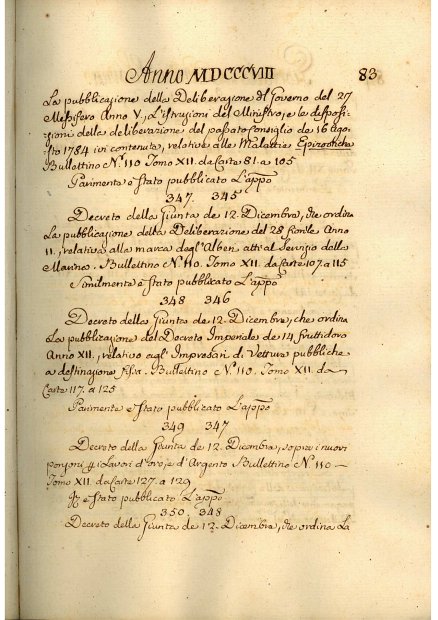 Anno MDCCCVIII 83
La pubblicazione della Deliberazione del Governo del 27
Messifero Anno V, L'istruzioni del Ministro, e le disposi-
zioni della deliberazione del passato Consiglio de 16 Ago-
sto 1784 ivi contenute, relative alle Malattie Epizootiche
Bullettino N.º 110 Tomo XII. da Carte 81. a 105
Parimente è stato pubblicato L'appo
347. 345
Decreto della Giunta de 12. Dicembre, che ordina
La pubblicazione della Deliberazione del 28 fiorile Anno
11., relativa alla marca degl'Alberi atti al Servizio della
Marina. Bullettino N.º 110. Tomo XII. da Carte 107. a 115
Similmente è stato pubblicato L'appo
348 346
Decreto della Giunta de 12. Dicembre, che ordina
La pubblicazione del Decreto Imperiale de 14 fruttidoro
Anno XII., relativo agl' Impresari di Vetture pubbliche
a destinazione fissa. Bullettino N.º 110. Tomo XII. da
Carte 117. a 125
Parimente è stato pubblicato L'appo
349 347
Decreto della Giunta de 12. Dicembre, sopra i nuovi
ponzoni p i Lavori d'oro, e d'Argento Bullettino N.º 110
Tomo XII. da Carte 127. a 129
è stato pubblicato L'appo
350. 348
Decreto della Giunta de 12. Dicembre, che ordina La